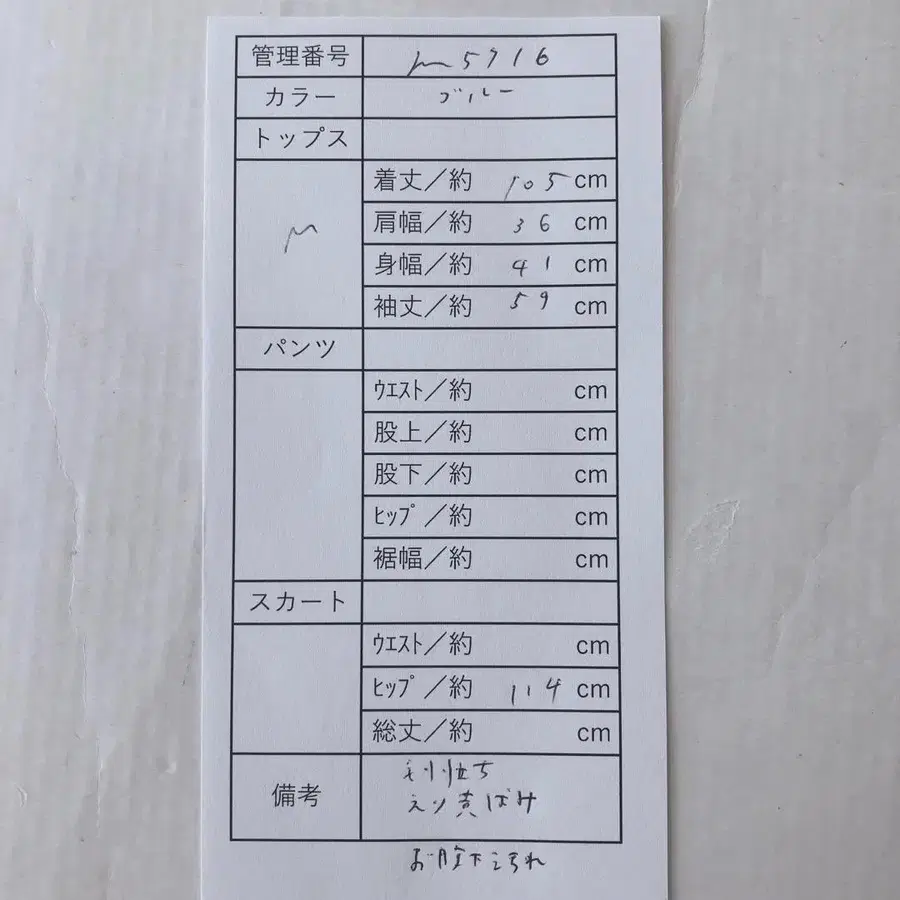 管理番号 m5716
カラー ブルー
トップス
M
着丈／約 105 cm
肩幅／約 36 cm
身幅／約 41 cm
袖丈／約 59 cm
パンツ
ｳｴｽﾄ／約 cm
股上／約 cm
股下／約 cm
ﾋｯﾌﾟ／約 cm
裾幅／約 cm
スカート
ｳｴｽﾄ／約 cm
ﾋｯﾌﾟ／約 114 cm
総丈／約 cm
備考
毛羽立ち
えり黄ばみ
汚れ